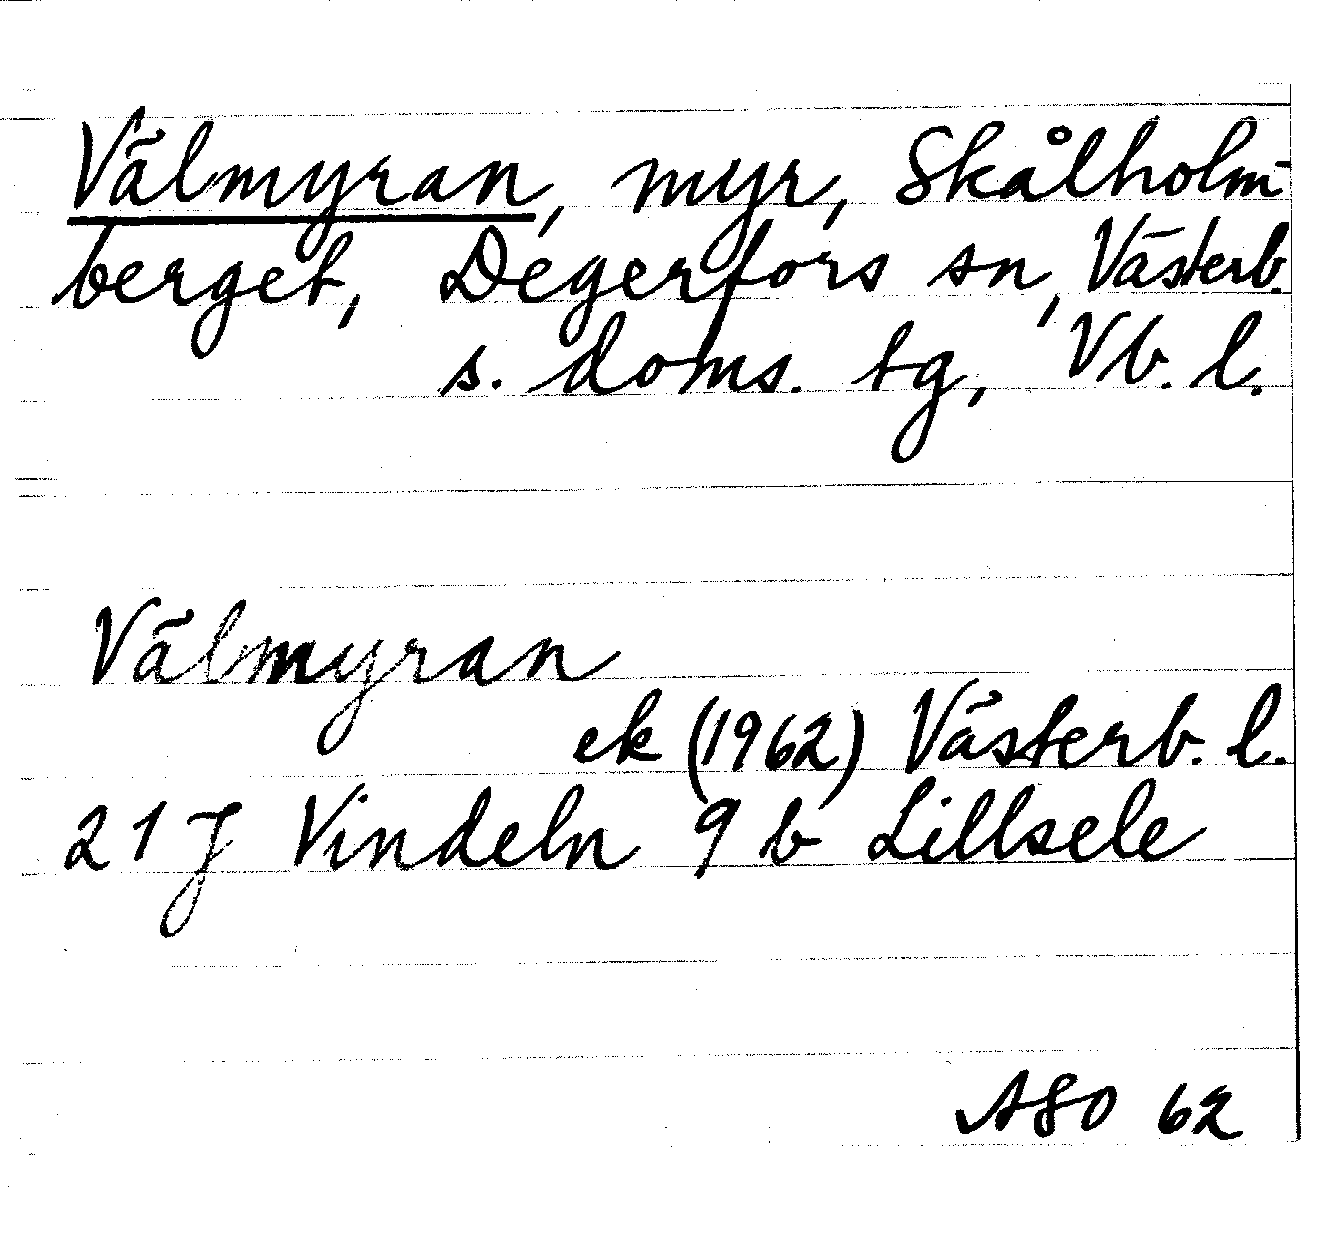 Välmyran, myr, Skålholm-
berget, Degerfors sn, Västerb.
s. doms. tg, Vb. l.
Välmyran
ek (1962) Västerb. l.
21 J Vindeln 9 b Lillsele
ASO 62